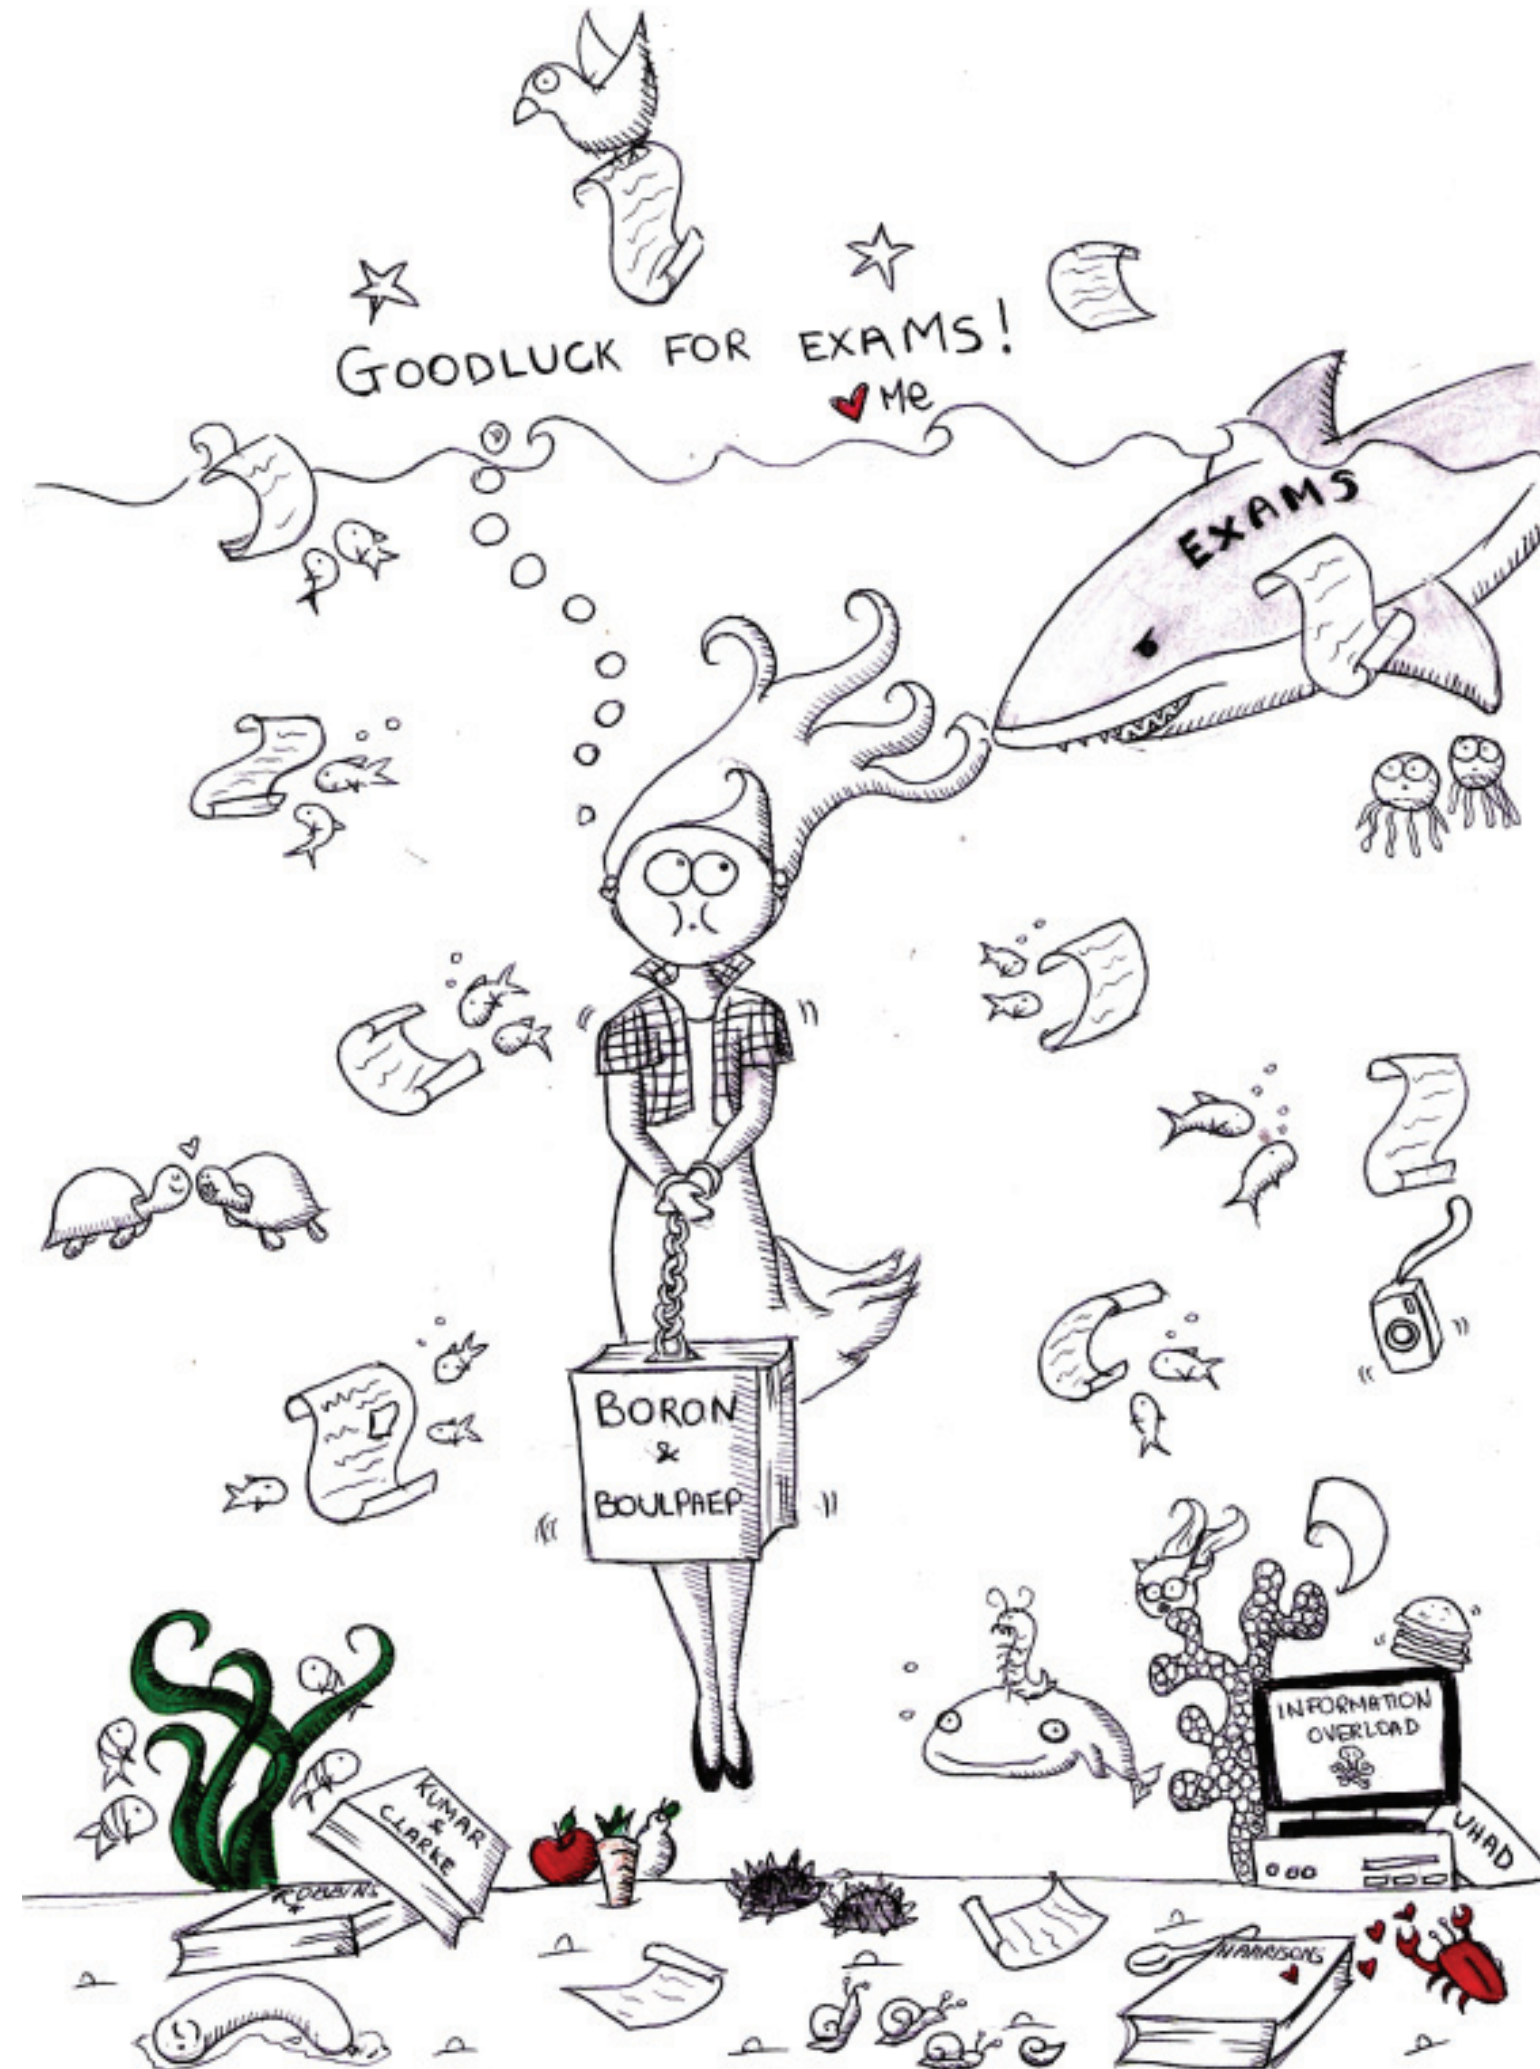 GOODLUCK FOR EXAMS!
Me
EXAMS
BORON
&
BOULPAEP
INFORMATION
OVERLOAD
KUMAR
&
CLARKE
UHAD
ROBBINS
HARRISONS